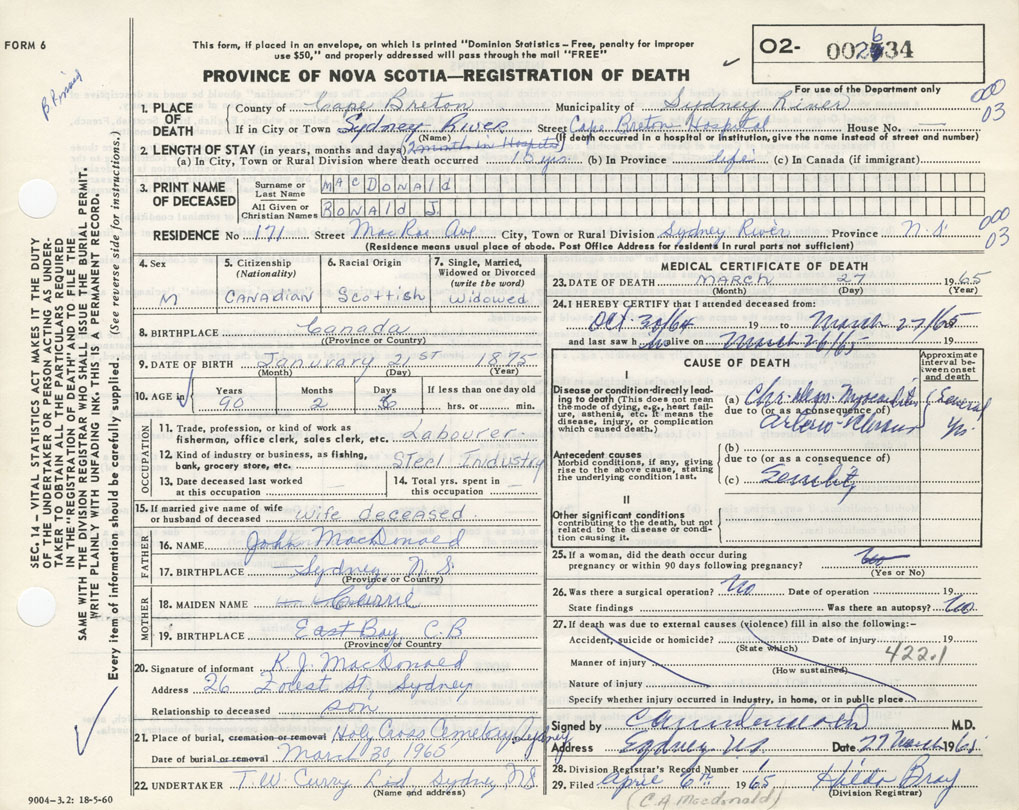 FORM 6
This form, if placed in an envelope, on which is printed "Dominion Statistics – Free, penalty for improper
use $50," and properly addressed will pass through the mail "FREE"
O2- 002634
PROVINCE OF NOVA SCOTIA—REGISTRATION OF DEATH
For use of the Department only
000
03
1. PLACE OF DEATH
County of Cape Breton Municipality of Sydney River
If in City or Town Sydney River Street Cape Breton Hospital House No. —
(Name) (If death occurred in a hospital or institution, give the name instead of street and number)
2. LENGTH OF STAY (in years, months and days)
(a) In City, Town or Rural Division where death occurred 15 yrs. (b) In Province life (c) In Canada (if immigrant)
3. PRINT NAME OF DECEASED
Surname or Last Name MacDonald
All Given or Christian Names Ronald J.
000
03
RESIDENCE No 171 Street MacRae Ave City, Town or Rural Division Sydney River Province N.S.
(Residence means usual place of abode. Post Office Address for residents in rural parts not sufficient)
4. Sex
M
5. Citizenship (Nationality)
Canadian
6. Racial Origin
Scottish
7. Single, Married, Widowed or Divorced (write the word)
Widowed
8. BIRTHPLACE Canada
(Province or Country)
9. DATE OF BIRTH January 21ST 1875
(Month) (Day) (Year)
10. AGE in Years 90 Months 2 Days 6 If less than one day old hrs. or min.
OCCUPATION
11. Trade, profession, or kind of work as
fisherman, office clerk, sales clerk, etc. Labourer
12. Kind of industry or business, as fishing,
bank, grocery store, etc. Steel Industry
13. Date deceased last worked at this occupation —
14. Total yrs. spent in this occupation —
15. If married give name of wife
or husband of deceased wife deceased.
FATHER
16. NAME John MacDonald
17. BIRTHPLACE Sydney N.S.
(Province or Country)
MOTHER
18. MAIDEN NAME — Currie
19. BIRTHPLACE East Bay C.B
(Province or Country)
20. Signature of informant K.J. MacDonald
Address 26 Forest St, Sydney
Relationship to deceased son
21. Place of burial, cremation or removal Holy Cross Cemetery, Sydney
Date of burial or removal March 30, 1965
22. UNDERTAKER T.W. Curry Ltd, Sydney, N.S.
(Name and address)
MEDICAL CERTIFICATE OF DEATH
23. DATE OF DEATH MARCH 27 1965
(Month) (Day) (Year)
24. I HEREBY CERTIFY that I attended deceased from:
Oct. 30/64 19 to March 27/65
and last saw him alive on March 26/65 19
CAUSE OF DEATH
Approximate interval between onset and death
I
Disease or condition directly leading to death (This does not mean the mode of dying, e.g., heart failure, asthenia, etc. It means the disease, injury, or complication which caused death.)
(a) Chr.
due to (or as a consequence of)
Several yrs
Antecedent causes
Morbid conditions, if any, giving rise to the above cause, stating the underlying condition last.
(b)
due to (or as a consequence of)
(c) Senility
II
Other significant conditions
contributing to the death, but not related to the disease or condition causing it.
25. If a woman, did the death occur during
pregnancy or within 90 days following pregnancy?
(Yes or No)
26. Was there a surgical operation? No Date of operation 19
State findings Was there an autopsy? No
27. If death was due to external causes (violence) fill in also the following:–
Accident, suicide or homicide? Date of injury 19
(State which)
422.1
Manner of injury
(How sustained)
Nature of injury
Specify whether injury occurred in industry, in home, or in public place
Signed by M.D.
Address Sydney N.S. Date 27 March 1965
28. Division Registrar's Record Number 1
29. Filed April 6th 1965 Hilda Bray
(Division Registrar)
(C.A. Macdonald)
9004-3.2: 18-5-60
SEC. 14 – VITAL STATISTICS ACT MAKES IT THE DUTY
OF THE UNDERTAKER OR PERSON ACTING AS UNDER-
TAKER TO OBTAIN ALL THE PARTICULARS REQUIRED
IN THE "REGISTRATION OF DEATH" AND TO FILE THE
SAME WITH THE DIVISION REGISTRAR WHO SHALL ISSUE THE BURIAL PERMIT.
WRITE PLAINLY WITH UNFADING INK. THIS IS A PERMANENT RECORD.
Every item of information should be carefully supplied. (See reverse side for instructions.)